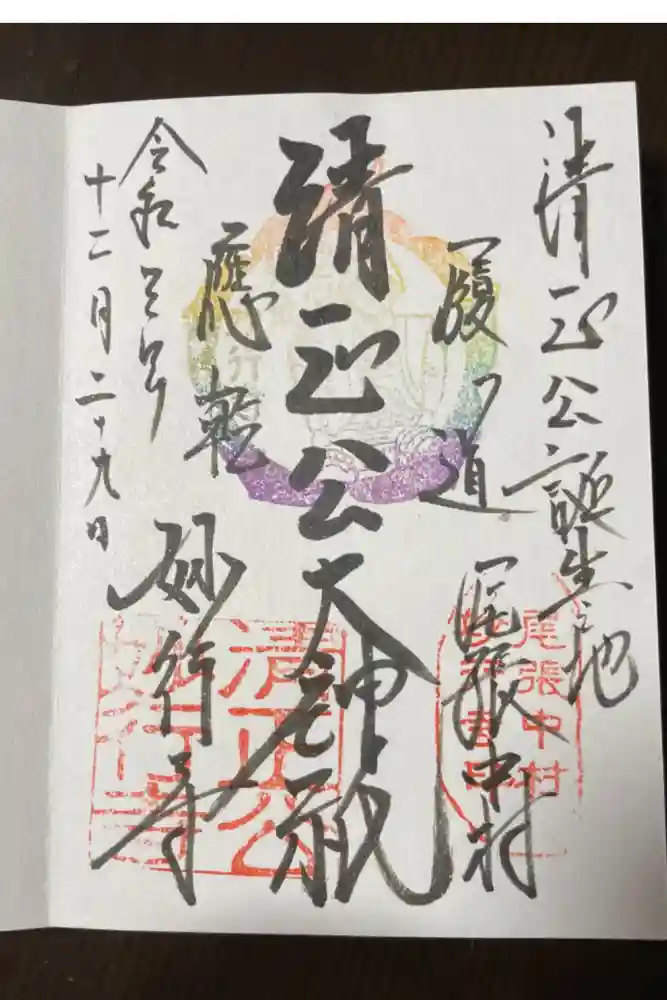 清正公誕生之地
履道
尾張中村
清正公大神祇
應乾
妙行寺
令和三年
十二月二十九日
尾張中村
清正公
妙行寺